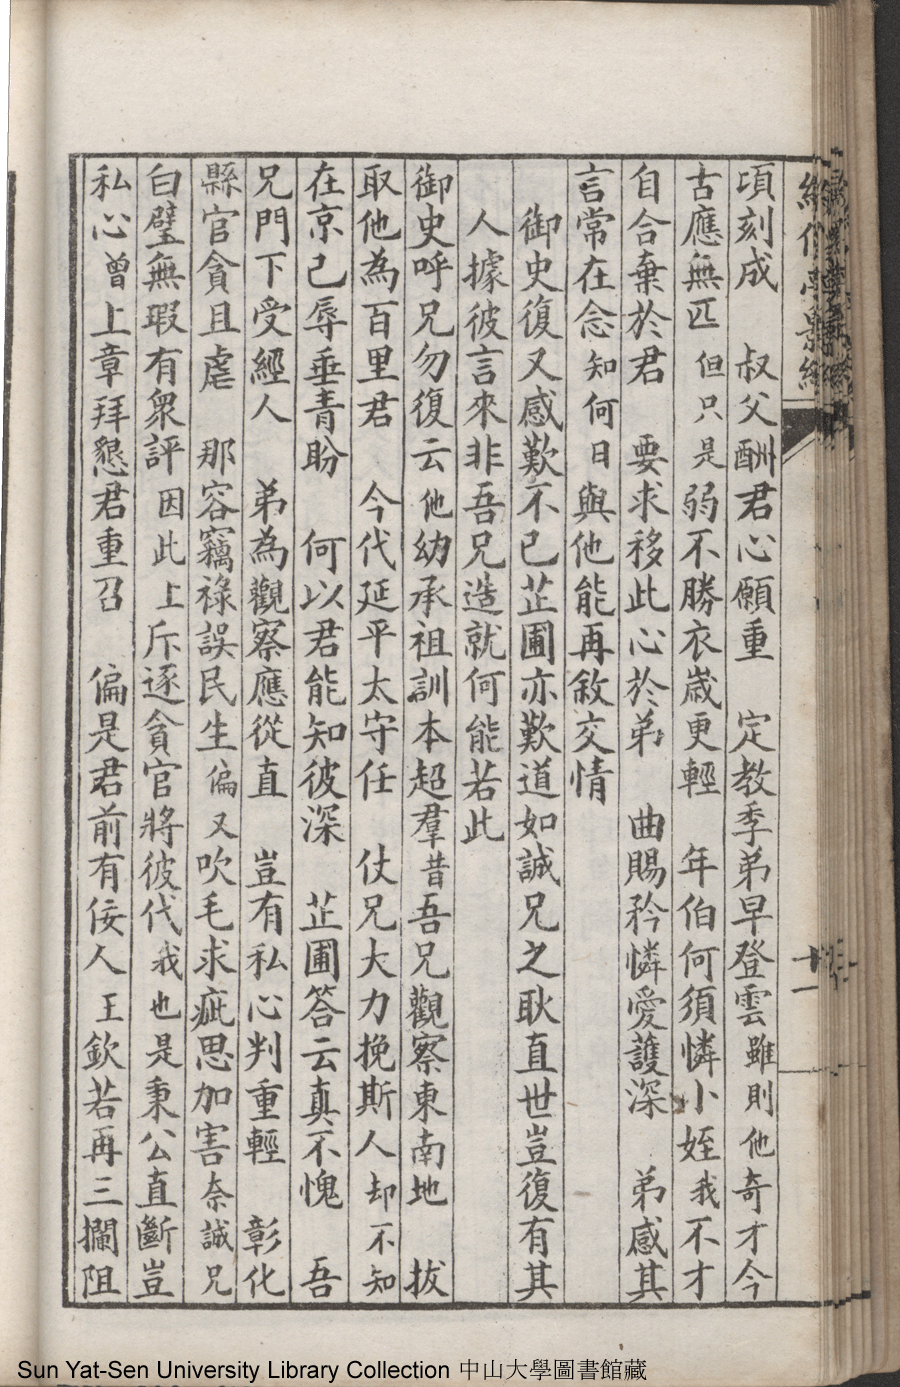 頃刻成　叔父酬君心願重　定教季弟早登雲雖則他奇才今
古應無匹但只是弱不勝衣歲更輕　年伯何須憐小姪我不才
自合棄於君　要求移此心於弟　曲賜矜憐愛護深　弟感其
言常在念知何日與他能再敘交情
御史復又感歎不已芷圃亦歎道如誠兄之耿直世豈復有其
人據彼言來非吾兄造就何能若此
御史呼兄勿復云他幼承祖訓本超羣昔吾兄觀察東南地　拔
取他為百里君　今代延平太守任　仗兄大力挽斯人却不知
在京已辱垂青盼　何以君能知彼深　芷圃答云真不愧　吾
兄門下受經人　弟為觀察應從直　豈有私心判重輕　彰化
縣官貪且虐　那容竊祿誤民生偏又吹毛求疵思加害奈誠兄
白璧無瑕有衆評因此上斥逐貪官將彼代我也是秉公直斷豈
私心曾上章拜懇君重召　偏是君前有佞人王欽若再三攔阻
十一
Sun Yat-Sen University Library Collection 中山大學圖書館藏